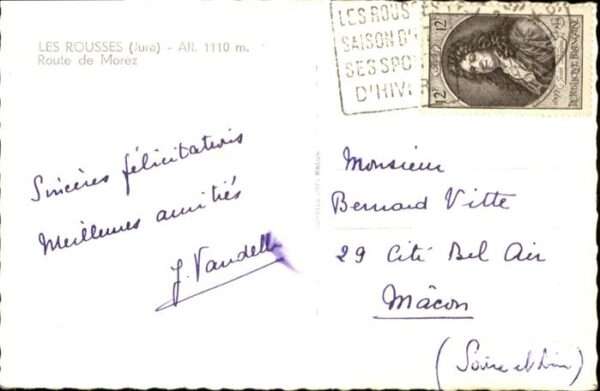 LES ROUSSES (Jura) - Alt. 1110 m.
Route de Morez
LES ROUSS
SAISON D'
SES SPO
D'HIVER
12f
12f
Sincères félicitations
Meilleures amitiés
J. Vandelle
Monsieur
Bernard Vitte
29 Cité Bel Air
Mâcon
(Saône et Loire)